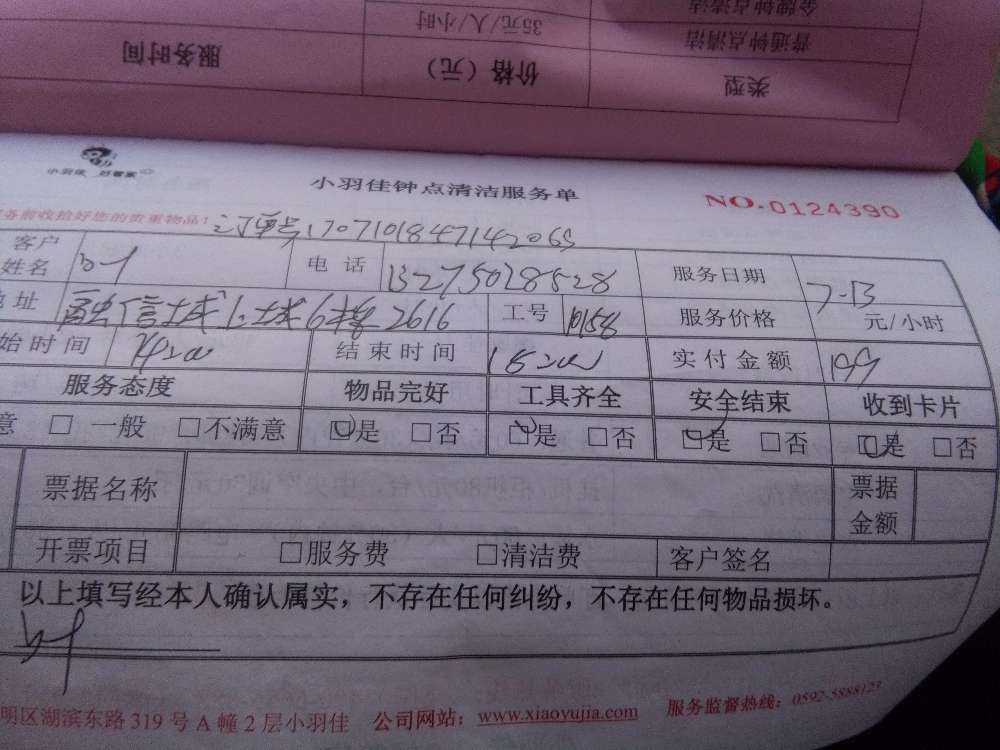 服务时间 价格（元） 类型
35元/人/小时 普通钟点清洁
金牌钟点清洁
小羽佳 好管家
小羽佳钟点清洁服务单 NO.0124390
务前收拾好您的贵重物品！订单号1707101847142065
客户姓名 电话 13275028528 服务日期 7-13
地址 融信城上城6栋2616 工号 10158 服务价格 元/小时
始时间 结束时间 实付金额 199
服务态度 物品完好 工具齐全 安全结束 收到卡片
意 □ 一般 □不满意 □是 □否 □是 □否 □是 □否 □是 □否
票据名称 票据金额
开票项目 □服务费 □清洁费 客户签名
以上填写经本人确认属实，不存在任何纠纷，不存在任何物品损坏。
明区湖滨东路319号A幢2层小羽佳 公司网站：www.xiaoyujia.com 服务监督热线：0592-5888123